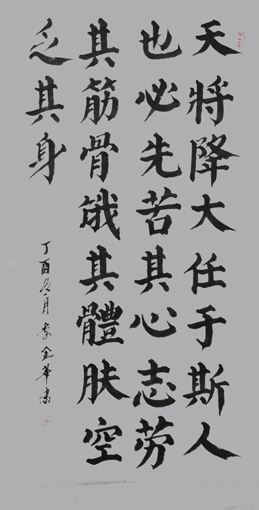 天將降大任于斯人
也必先苦其心志劳
其筋骨饿其體肤空
乏其身
丁酉冬月李金華书